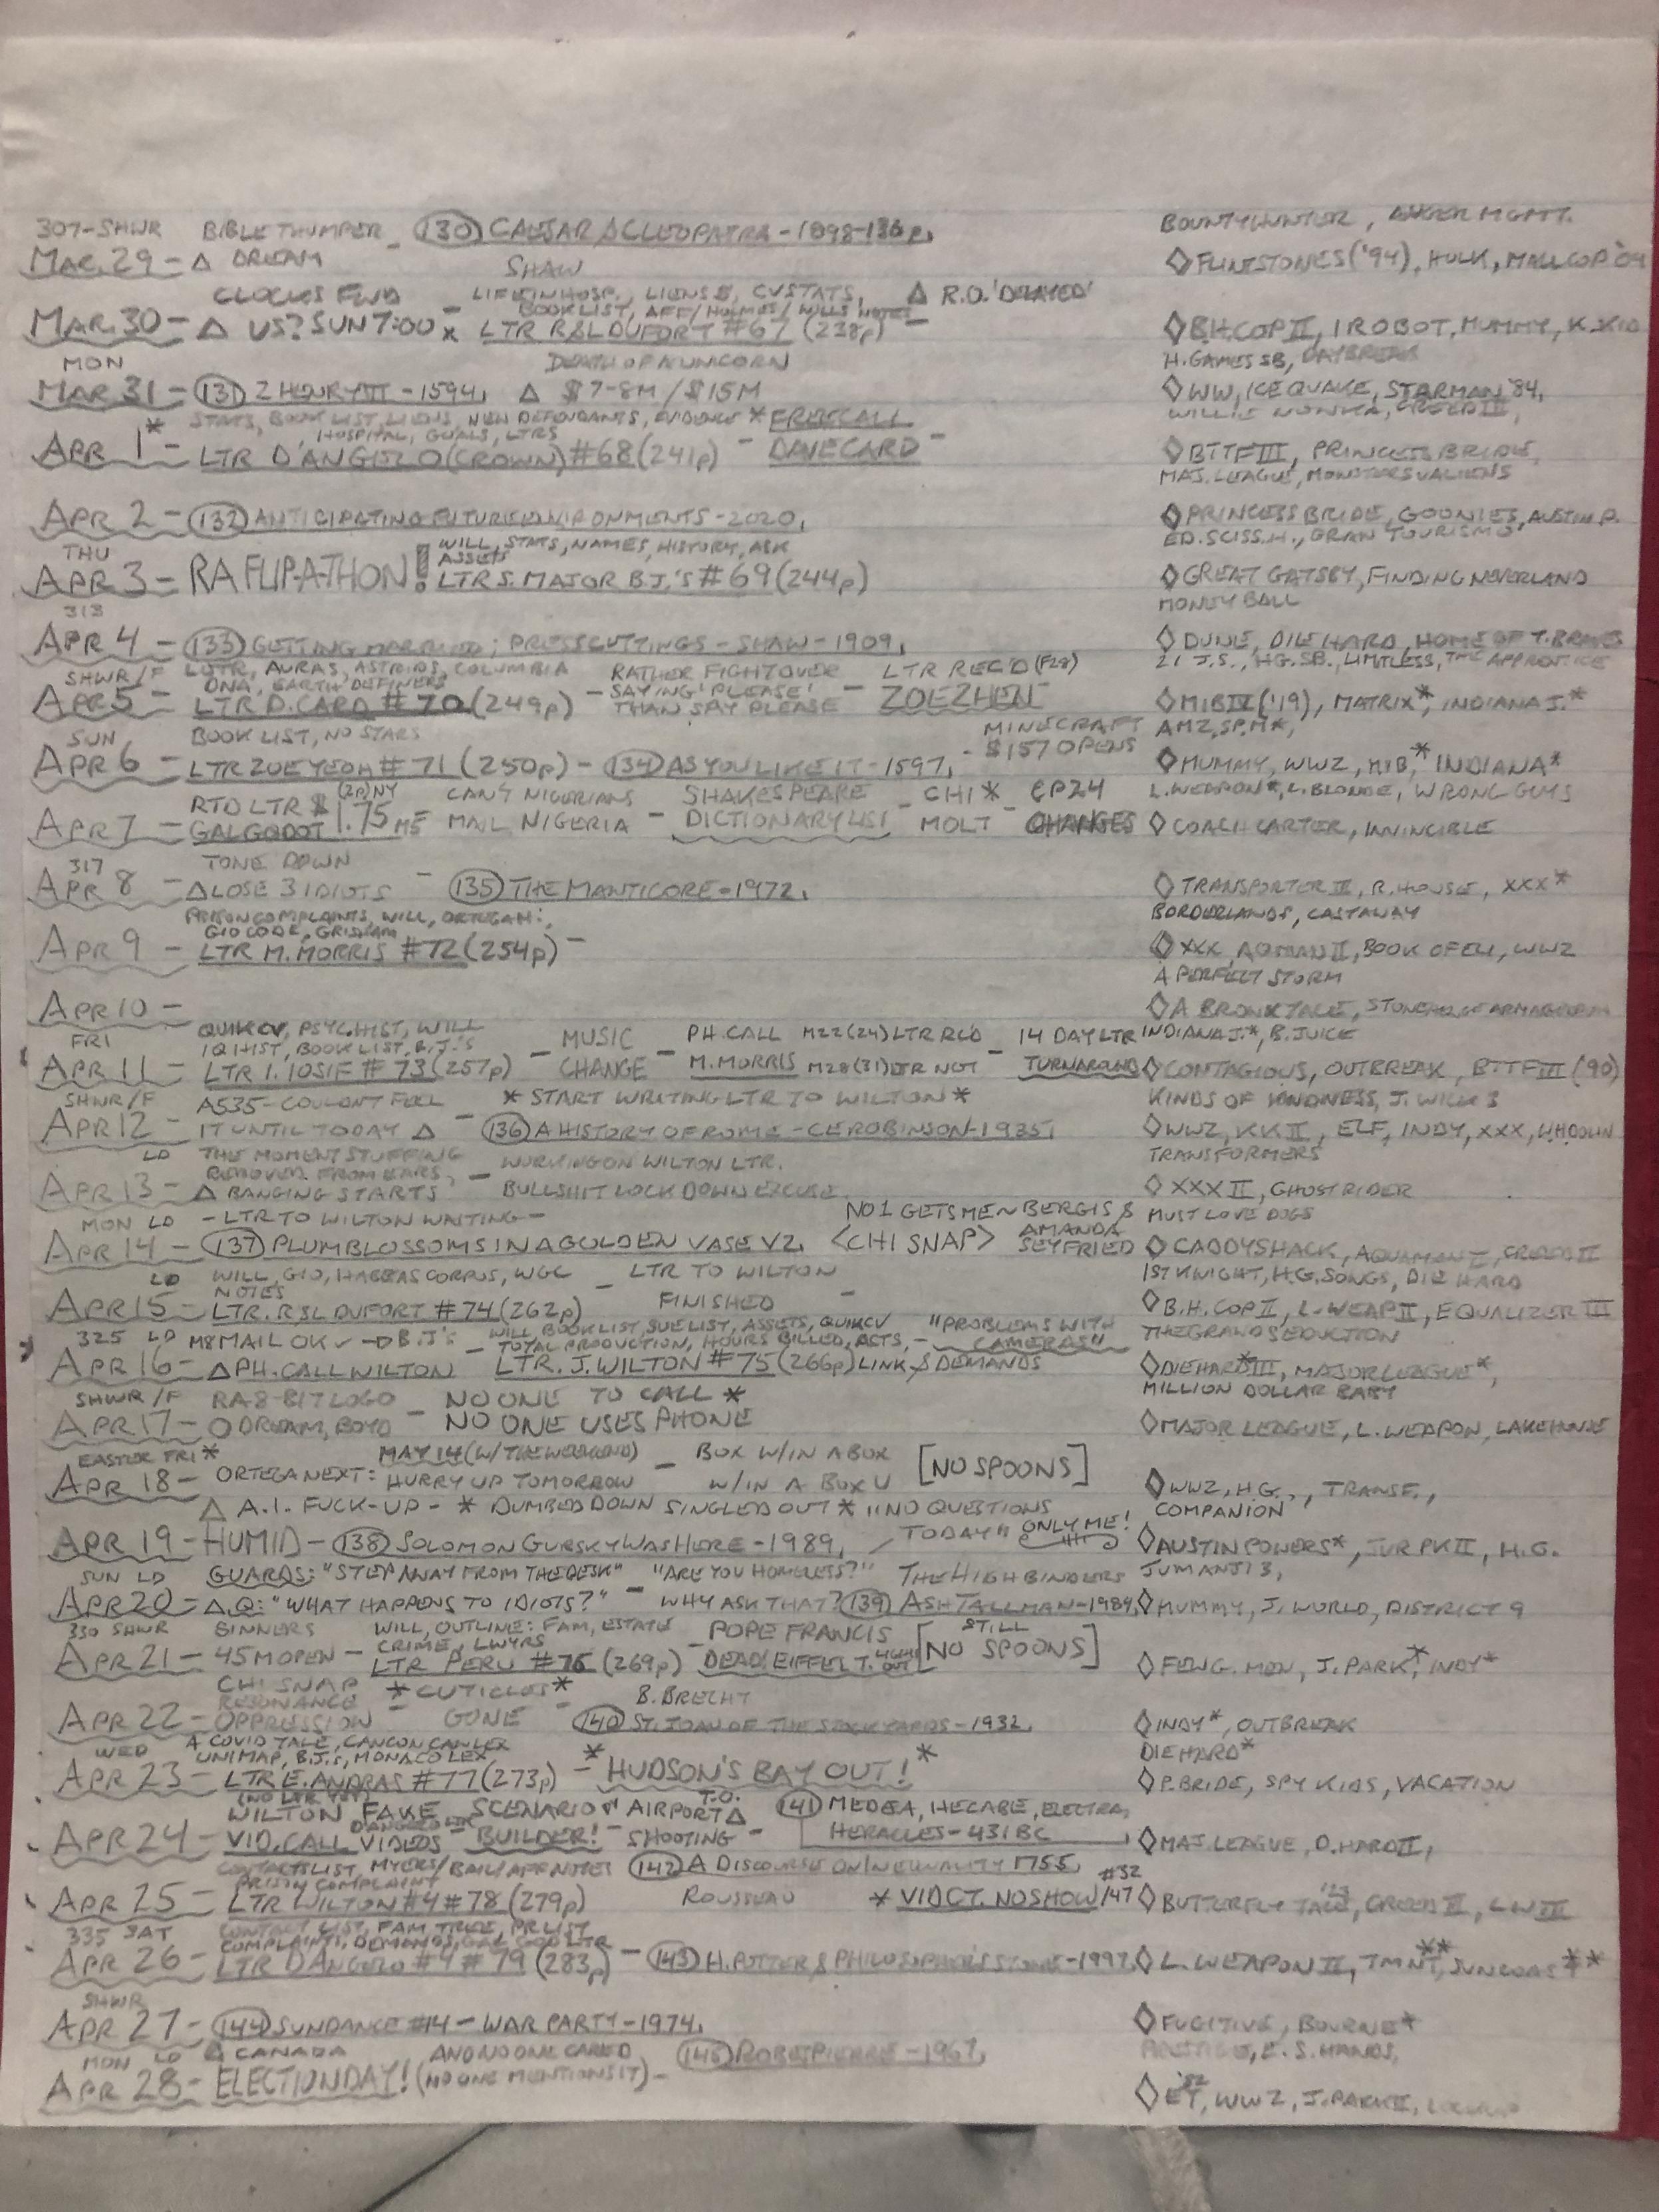 307-SHWR BIBLE THUMPER - (130) CAESAR & CLEOPATRA - 1898-136p, BOUNTYHUNTER, ANGER MGMT.
MAR. 29 - Δ DREAM SHAW ◇ FLINTSTONES ('94), HULK, MALLCOP '09
CLOCKS FWD - LIFE IN HOSP., LIENS $, CV STATS, Δ R.O. 'DELAYED'
BOOK LIST, AFF/HOLMES/WILLS NOTES
MAR. 30 - Δ US? SUN 7:00 x LTR R&L DUFORT #67 (238p) - ◇ B.H. COP II, I ROBOT, MUMMY, K. KID
MON DEATH OF A UNICORN H. GAMES SB, DAYBREAK
MAR 31 - (131) 2 HENRY VI - 1594, Δ $7-8M / $15M ◇ WW, ICE QUAKE, STARMAN '84,
STATS, BOOK LIST, LIENS, NEW DEFENDANTS, EVIDENCE * FREE CALL WILLIE WONKA, CREED III,
HOSPITAL, GOALS, LTRS
APR 1* - LTR D'ANGELO (CROWN) #68 (241p) - DAVE CARD - ◇ BTTF III, PRINCESS BRIDE,
MAJ. LEAGUE, MONSTERS V ALIENS
APR 2 - (132) ANTICIPATING FUTURE ENVIRONMENTS - 2020, ◇ PRINCESS BRIDE, GOONIES, AUSTIN P.
THU WILL, STATS, NAMES, HISTORY, ASK ED. SCISS. H., GRAN TOURISMO
ASSETS
APR 3 - RA FLIP-A-THON! LTR S. MAJOR B.J.'S #69 (244p) ◇ GREAT GATSBY, FINDING NEVERLAND
313 MONEY BALL
APR 4 - (133) GETTING MARRIED; PRESS CUTTINGS - SHAW - 1909, ◇ DUNE, DIE HARD, HOME OF T. BRAVES
SHWR/F LOTR, AURAS, ASTRIDS, COLUMBIA RATHER FIGHT OVER LTR REC'D (F28) 21 J.S., HG. SB., LIMITLESS, THE APPRENTICE
DNA, EARTH DEFINERS
APR 5 - LTR D. CARD #70 (249p) - SAYING 'PLEASE' THAN SAY PLEASE - ZOE ZHEN ◇ MIB IV ('19), MATRIX*, INDIANA J.*
SUN BOOK LIST, NO STARS MINECRAFT AMZ, SP. M*,
APR 6 - LTR ZOE YEOH #71 (250p) - (134) AS YOU LIKE IT - 1597, - $157 OPENS ◇ MUMMY, WWZ, MIB,* INDIANA*
RTD LTR $ (2p) NY CAN'T NIGERIANS SHAKESPEARE - CHI* CP24 L. WEAPON*, L. BLONDE, WRONG GUYS
APR 7 - GAL GODOT 1.75 MF MAIL NIGERIA - DICTIONARY LIST MOLT - CHANGES ◇ COACH CARTER, INVINCIBLE
317 TONE DOWN
APR 8 - Δ LOSE 3 IDIOTS - (135) THE MANTICORE - 1972, ◇ TRANSPORTER III, R. HOUSE, XXX*
PRISON COMPLAINTS, WILL, ORTEGA H:, BORDERLANDS, CASTAWAY
GIO CODE, GRISHAM
APR 9 - LTR M. MORRIS #72 (254p) - ◇ XXX, AQMAN II, BOOK OF ELI, WWZ
A PERFECT STORM
APR 10 - ◇ A BRONX TALE,
FRI QUIK CV, PSYC. HIST, WILL - MUSIC - PH. CALL M22 (24) LTR RCD - 14 DAY LTR INDIANA J.*, B. JUICE
IQ HIST, BOOK LIST, B.J.'S
APR 11 - LTR I. IOSIF #73 (257p) CHANGE M. MORRIS M28 (31) LTR NOT TURNAROUND ◇ CONTAGIOUS, OUTBREAK, BTTF III (90)
SHWR/F A535 - COULDN'T FEEL * START WRITING LTR TO WILTON * KINDS OF KINDNESS, J. WICK 3
APR 12 - IT UNTIL TODAY Δ - (136) A HISTORY OF ROME - CE ROBINSON - 1935, ◇ WWZ, KK II, ELF, INDY, XXX, WH DOWN
LD THE MOMENT STUFFING - WORKING ON WILTON LTR. TRANSFORMERS
REMOVED FROM EARS,
APR 13 - Δ BANGING STARTS BULLSHIT LOCK DOWN EXCUSE ◇ XXX II, GHOST RIDER
MON LD - LTR TO WILTON WAITING - NO 1 GETS MEN BERGIS & MUST LOVE DOGS
APR 14 - (137) PLUM BLOSSOMS IN A GOLDEN VASE V2, <CHI SNAP> AMANDA SEYFRIED ◇ CADDYSHACK, AQUAMAN I, CREED II
LD WILL, GIO, HABEAS CORPUS, WGC - LTR TO WILTON 1ST KNIGHT, H.G. SONGS, DIE HARD
NOTES
APR 15 - LTR. R&L DUFORT #74 (262p) FINISHED - ◇ B.H. COP II, L. WEAP II, EQUALIZER III
325 LD M8 MAIL OK ✓ → B.J'S - WILL, BOOK LIST, SUE LIST, ASSETS, QUIKCV "PROBLEMS WITH THE GRAND SEDUCTION
TOTAL PRODUCTION, HOURS BILLED, ACTS, - CAMERAS"
APR 16 - Δ PH. CALL WILTON LTR. J. WILTON #75 (266p) LINK & DEMANDS ◇ DIEHARD* III, MAJOR LEAGUE*,
SHWR/F RA 8-BIT LOGO - NO ONE TO CALL * MILLION DOLLAR BABY
APR 17 - O DREAM, BOYD NO ONE USES PHONE ◇ MAJOR LEAGUE, L. WEAPON, LAKEHOUSE
EASTER FRI* MAY 14 (W/ THE WEEKEND) - BOX W/IN A BOX [NO SPOONS]
APR 18 - ORTEGA NEXT: HURRY UP TOMORROW W/IN A BOX U ◇ WWZ, H.G., , TRANSF.,
Δ A.I. FUCK-UP - * DUMBED DOWN SINGLED OUT * "NO QUESTIONS COMPANION
APR 19 - HUMID - (138) SOLOMON GURSKY WAS HERE - 1989, / TODAY" ONLY ME! ◇ AUSTIN POWERS*, JUR PK II, H.G.
SUN LD GUARDS: "STEP AWAY FROM THE DESK" "ARE YOU HOMELESS?" THE HIGHBINDERS JUMANJI 3,
APR 20 - Δ Q: "WHAT HAPPENS TO IDIOTS?" - WHY ASK THAT? (139) ASH TALLMAN - 1989, ◇ MUMMY, J. WORLD, DISTRICT 9
330 SHWR SINNERS WILL, OUTLINE: FAM, ESTATE - POPE FRANCIS STILL
CRIME, LWYRS
APR 21 - 45M OPEN - LTR PERU #76 (269p) DEAD/EIFFEL T. LIGHTS OUT [NO SPOONS] ◇ FEW G. MEN, J. PARK*, INDY*
CHI SNAP * CUTICLES * B. BRECHT
RESONANCE
APR 22 - OPPRESSION - GONE - (140) ST. JOAN OF THE STOCKYARDS - 1932, ◇ INDY*, OUTBREAK
WED A COVID TALE, CANCON CANLEX DIEHARD*
UNIMAP, B.J.'s, MONACO LEX,
APR 23 - LTR E. ANDRAS #77 (273p) - * HUDSON'S BAY OUT! * ◇ P. BRIDE, SPY KIDS, VACATION
(NO LTR YET) T.O.
WILTON FAKE SCENARIO " AIRPORT Δ (141) MEDEA, HECABE, ELECTRA,
D'ANGELO LTR
APR 24 - VID. CALL VIDEOS - BUILDER! - SHOOTING - HERACLES - 431 BC ◇ MAJ. LEAGUE, D. HARD II,
CONTACTS LIST, MYERS/BAIL/AFF NOTES (142) A DISCOURSE ON INEQUALITY 1755, #32
PRISON COMPLAINT
APR 25 - LTR WILTON #4 #78 (279p) ROUSSEAU * VID CT. NO SHOW/147 ◇ BUTTERFLY TALE '23, CREED II, LW III
335 SAT CONTACT LIST, FAM TREE, PR LIST
COMPLAINTS, DEMANDS, GAL GOD LTR
APR 26 - LTR D'ANGELO #4 #79 (283p) - (143) H. POTTER & PHILOSOPHER'S STONE - 1997, ◇ L. WEAPON II, TMNT**,
SHWR
APR 27 - (144) SUNDANCE #14 - WAR PARTY - 1974, ◇ FUGITIVE, BOURNE*
MON LD CANADA AND NO ONE CARED E.S. HANDS,
APR 28 - ELECTION DAY! (NO ONE MENTIONS IT) - (145) ROBESPIERRE - 1967, ◇ ET '82, WWZ, J. PARK II,